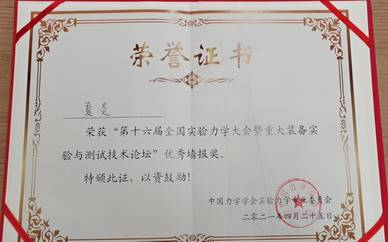 荣誉证书
夏昊
荣获“第十六届全国实验力学大会暨重大装备实
验与测试技术论坛”优秀墙报奖。
特颁此证，以资鼓励！
中国力学学会实验力学专业委员会
二零二一年四月二十五日